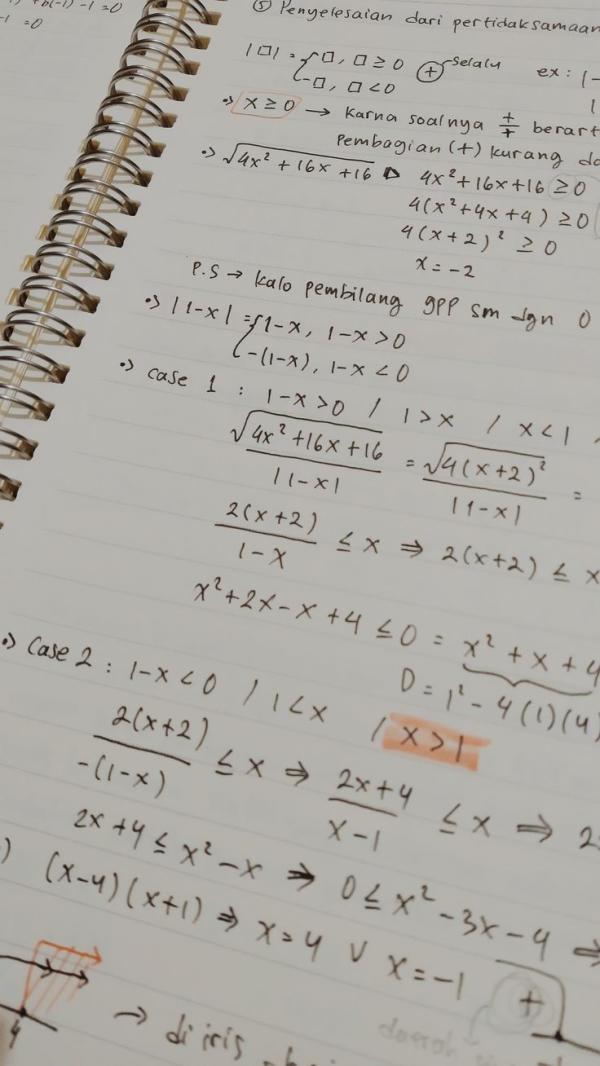 -1 =0
⑤ Penyelesaian dari pertidaksamaan
|□| = { □, □ ≥ 0 (+) selalu ex: |-
-□, □ < 0
•> x ≥ 0 → karna soalnya +/+ berart
Pembagian (+) kurang da
•> √4x² + 16x + 16 ▷ 4x² + 16x + 16 ≥ 0
4(x² + 4x + 4) ≥ 0
4(x + 2)² ≥ 0
x = -2
P.S → kalo pembilang gpp sm dgn 0
•> |1-x| = { 1-x, 1-x > 0
-(1-x), 1-x < 0
•> case 1 : 1-x > 0 / 1 > x / x < 1
√4x² + 16x + 16 / |1-x| = √4(x+2)² / |1-x| =
2(x+2) / 1-x ≤ x ⇒ 2(x+2) ≤ x
x² + 2x - x + 4 ≤ 0 = x² + x + 4
D = 1² - 4(1)(4)
•> case 2 : 1-x < 0 / 1 < x / x > 1
2(x+2) / -(1-x) ≤ x ⇒ 2x+4 / x-1 ≤ x ⇒ 2
2x + 4 ≤ x² - x ⇒ 0 ≤ x² - 3x - 4 ⇒
(x-4)(x+1) ⇒ x = 4 ∨ x = -1
+
4 → di iris